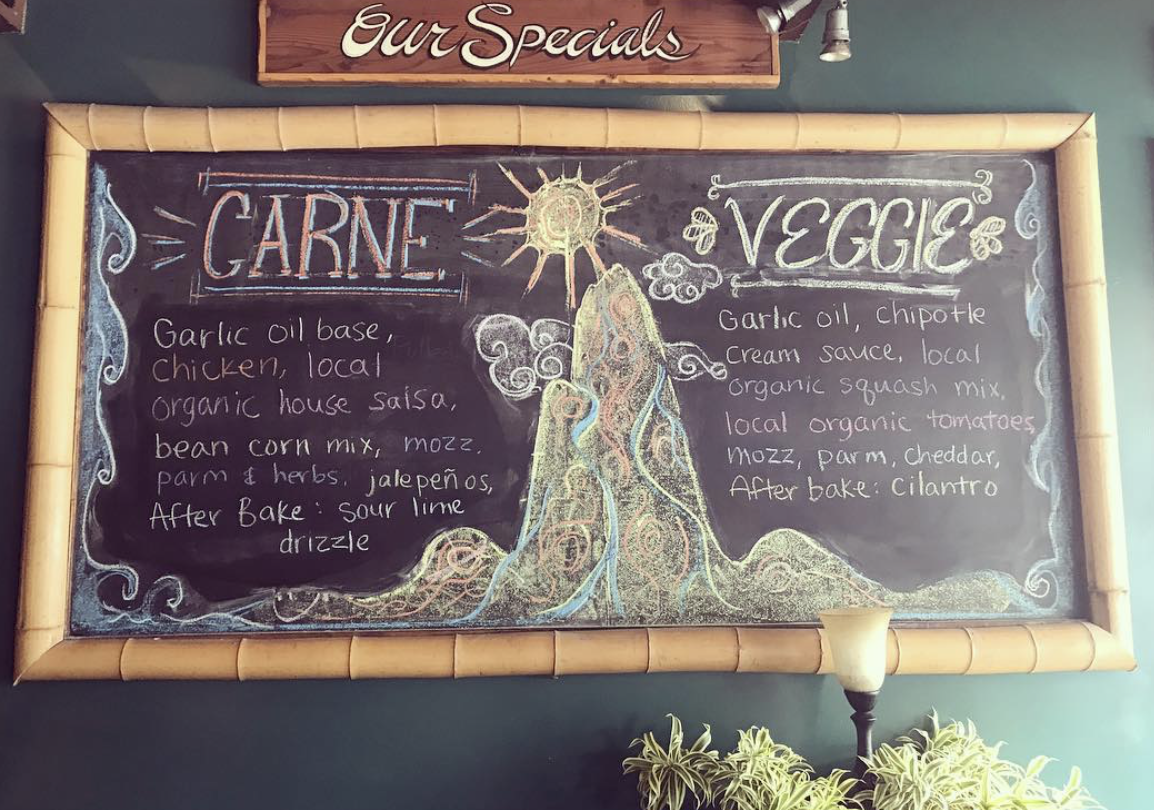 Our Specials
CARNE
Garlic oil base,
chicken, local
organic house salsa,
bean corn mix, mozz,
parm & herbs, jalepeños,
After Bake: sour lime
drizzle
VEGGIE
Garlic oil, chipotle
cream sauce, local
organic squash mix,
local organic tomatoes,
mozz, parm, cheddar,
After bake: cilantro